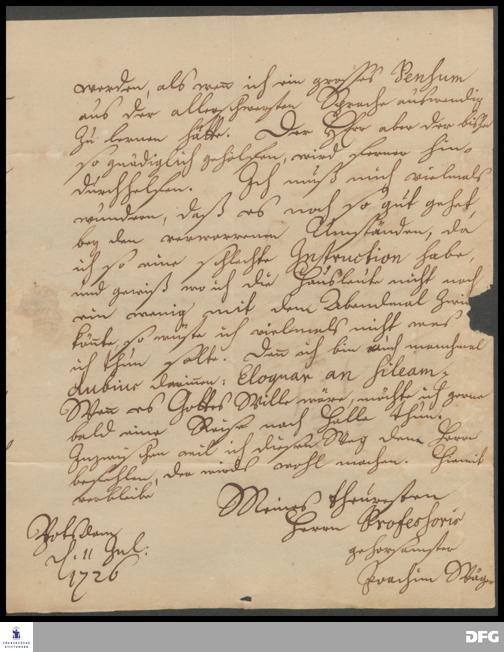 werden, als wenn ich ein grosses Pensum
aus der allerschwersten Sprache auswendig
zu lernen hätte. Der HErr aber der bisher
so gnädiglich geholfen, wird ferner hin-
durchhelfen. Ich muß mich vielmals
wundern, daß es noch so gut gehet,
bey den verworrenen Umständen, da
ich so eine schlechte Instruction habe,
und gewiß wo ich die Hausleute nicht noch
ein wenig mit dem Abendmal
könte, so wüste ich vielmals nicht was
ich thun solte. Denn ich bin auch manchmal
dubius darinnen: Eloquar an sileam.
Wenn es Gottes Wille wäre, möchte ich gerne
bald eine Reise nach Halle thun.
Inzwischen will ich diesen Weg dem Herrn
befehlen, der wirds wohl machen. Hiemit
verbleibe
Meines theuresten
Herrn Professoris
gehorsamster
Joachim
Potsdam
d. 11 Jul.
1726
FRANCKESCHE STIFTUNGEN
DFG